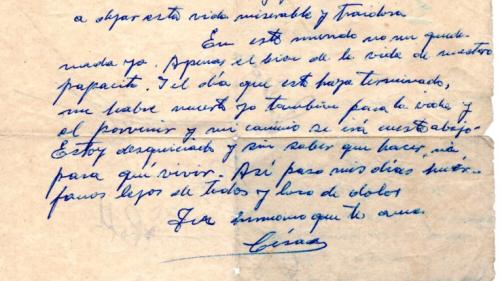 a dejar esta vida miserable y traidora
En este mundo no me queda
nada ya. Apenas el bien de la vida de nuestro
papacito. I el día que esto haya terminado,
me habré muerto yo también para la vida y
el porvenir y mi camino se irá cuesta abajo.
Estoy desquiciado y sin saber que hacer, ni
para qué vivir. Así paso mis días huér-
fanos lejos de todos y loco de dolor
Tu hermano que te ama.
César